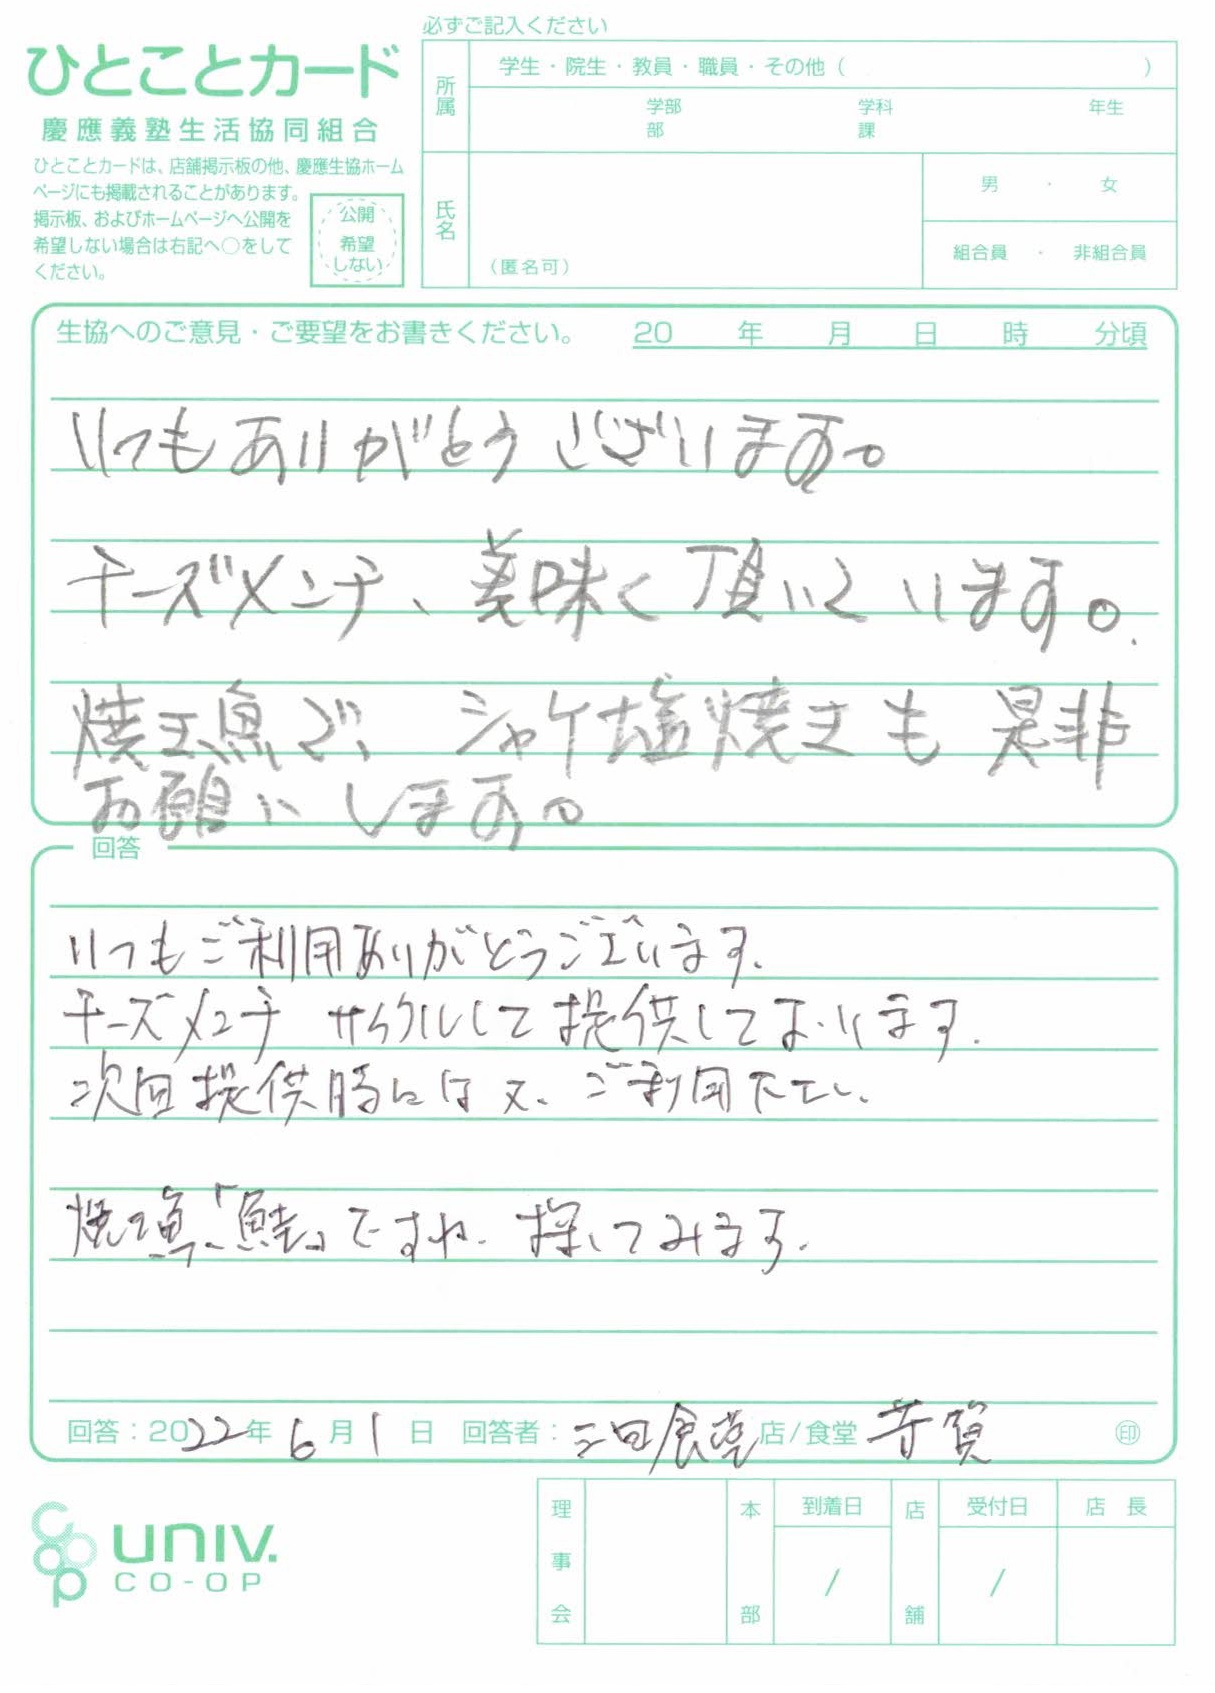 必ずご記入ください
ひとことカード
慶應義塾生活協同組合
ひとことカードは、店舗掲示板の他、慶應生協ホーム
ページにも掲載されることがあります。
掲示板、およびホームページへ公開を
希望しない場合は右記へ○をして
ください。
公開
希望
しない
所属
学生・院生・教員・職員・その他（ ）
学部 学科 年生
部 課
氏名
（匿名可）
男 ・ 女
組合員 ・ 非組合員
生協へのご意見・ご要望をお書きください。 20 年 月 日 時 分頃
いつもありがとうございます。
チーズメンチ、美味く頂いています。
焼き魚で、シャケ塩焼きも是非
お願いします。
回答
いつもご利用ありがとうございます。
チーズメンチ サイクルして提供しております。
次回提供時には又、ご利用下さい。
焼き魚、「鮭」ですね。探してみます。
回答：2022年6月1日 回答者：三田食堂店/食堂 芳賀 印
理事会
本部
到着日
/
店舗
受付日
/
店長
coop
univ.
CO-OP